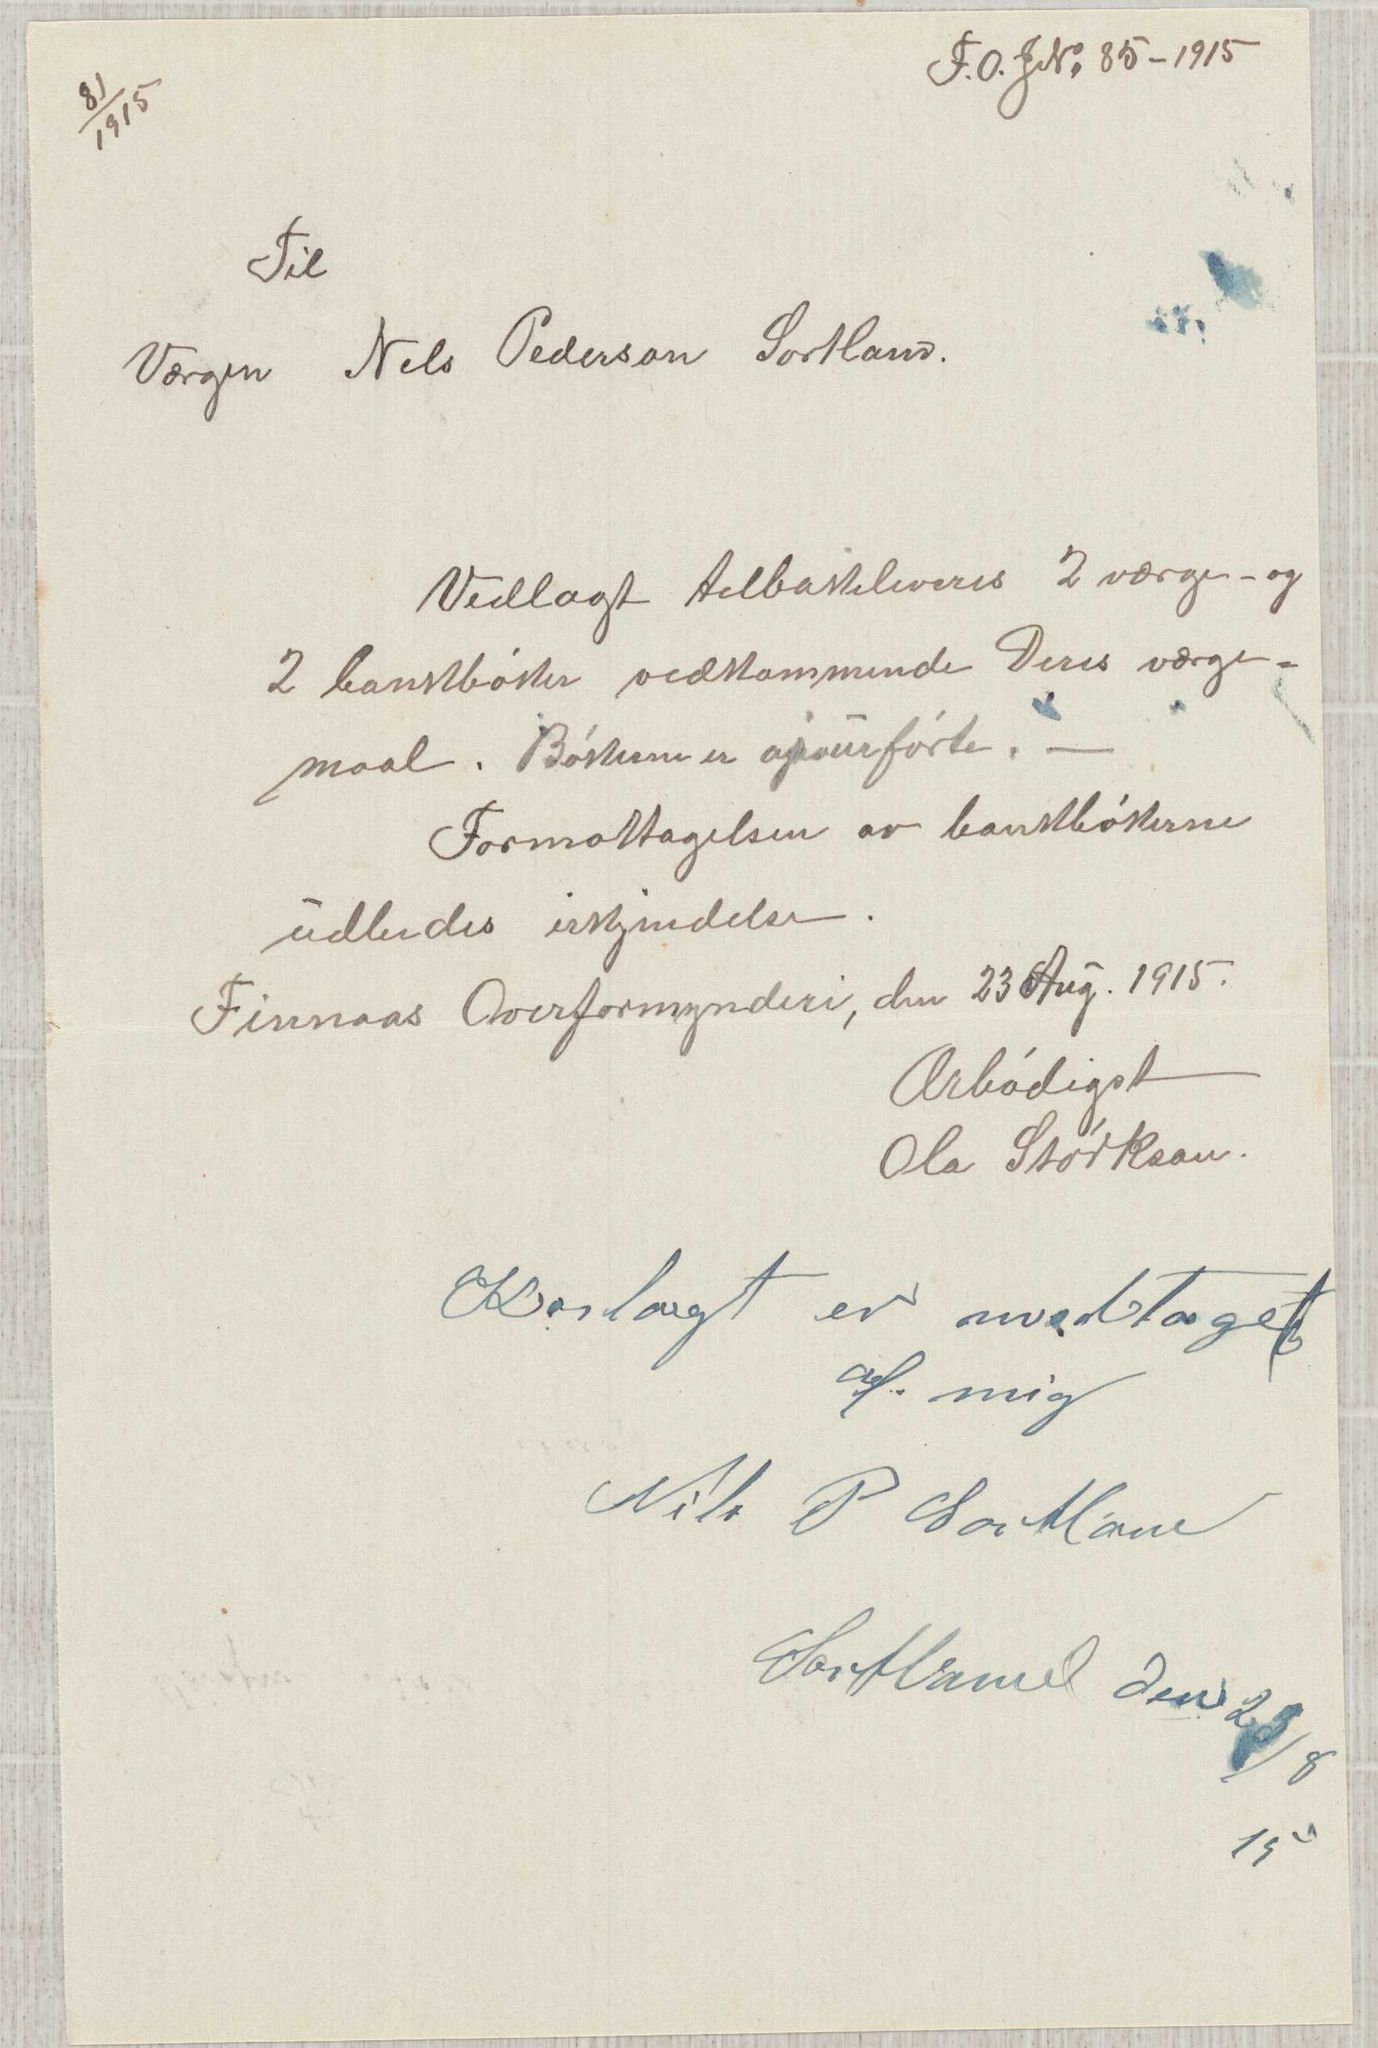 81/1915
F.O. JNo. 85-1915
Til
Værgen Nels Pederson Sortland.
Vedlagt telbakeleveres 2 værge- og
2 bankbøker vedkommende Deres værge-
maal. Bøkerne er ajourførte. —
Formottagelsen av bankbøkerne
udbedes erkjendelse.
Finnaas Overformynderi, den 23 Aug. 1915.
Ærbødigst
Ola Størkson.
er modtaget
af mig
Nils P Sortland
Sortland den 23/8
15